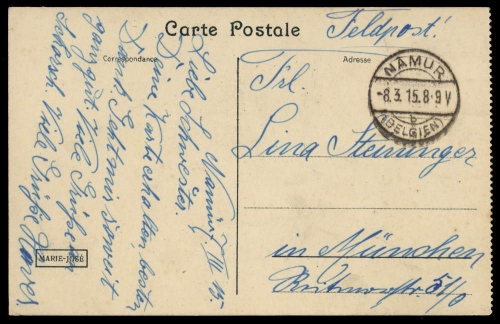 Carte Postale
Feldpost!
Correspondance
Adresse
NAMUR
-8.3.15.8-9V
b
(BELGIEN)
Namur, 7. III. 15.
Liebe Schwester,
Deine Karte erhalten, besten
Dank. Geht mir soweit
ganz gut. Viele Grüße an
Viele Grüße
MARIE-JOSÉ
Frl.
Lina Steininger
in München
51/0